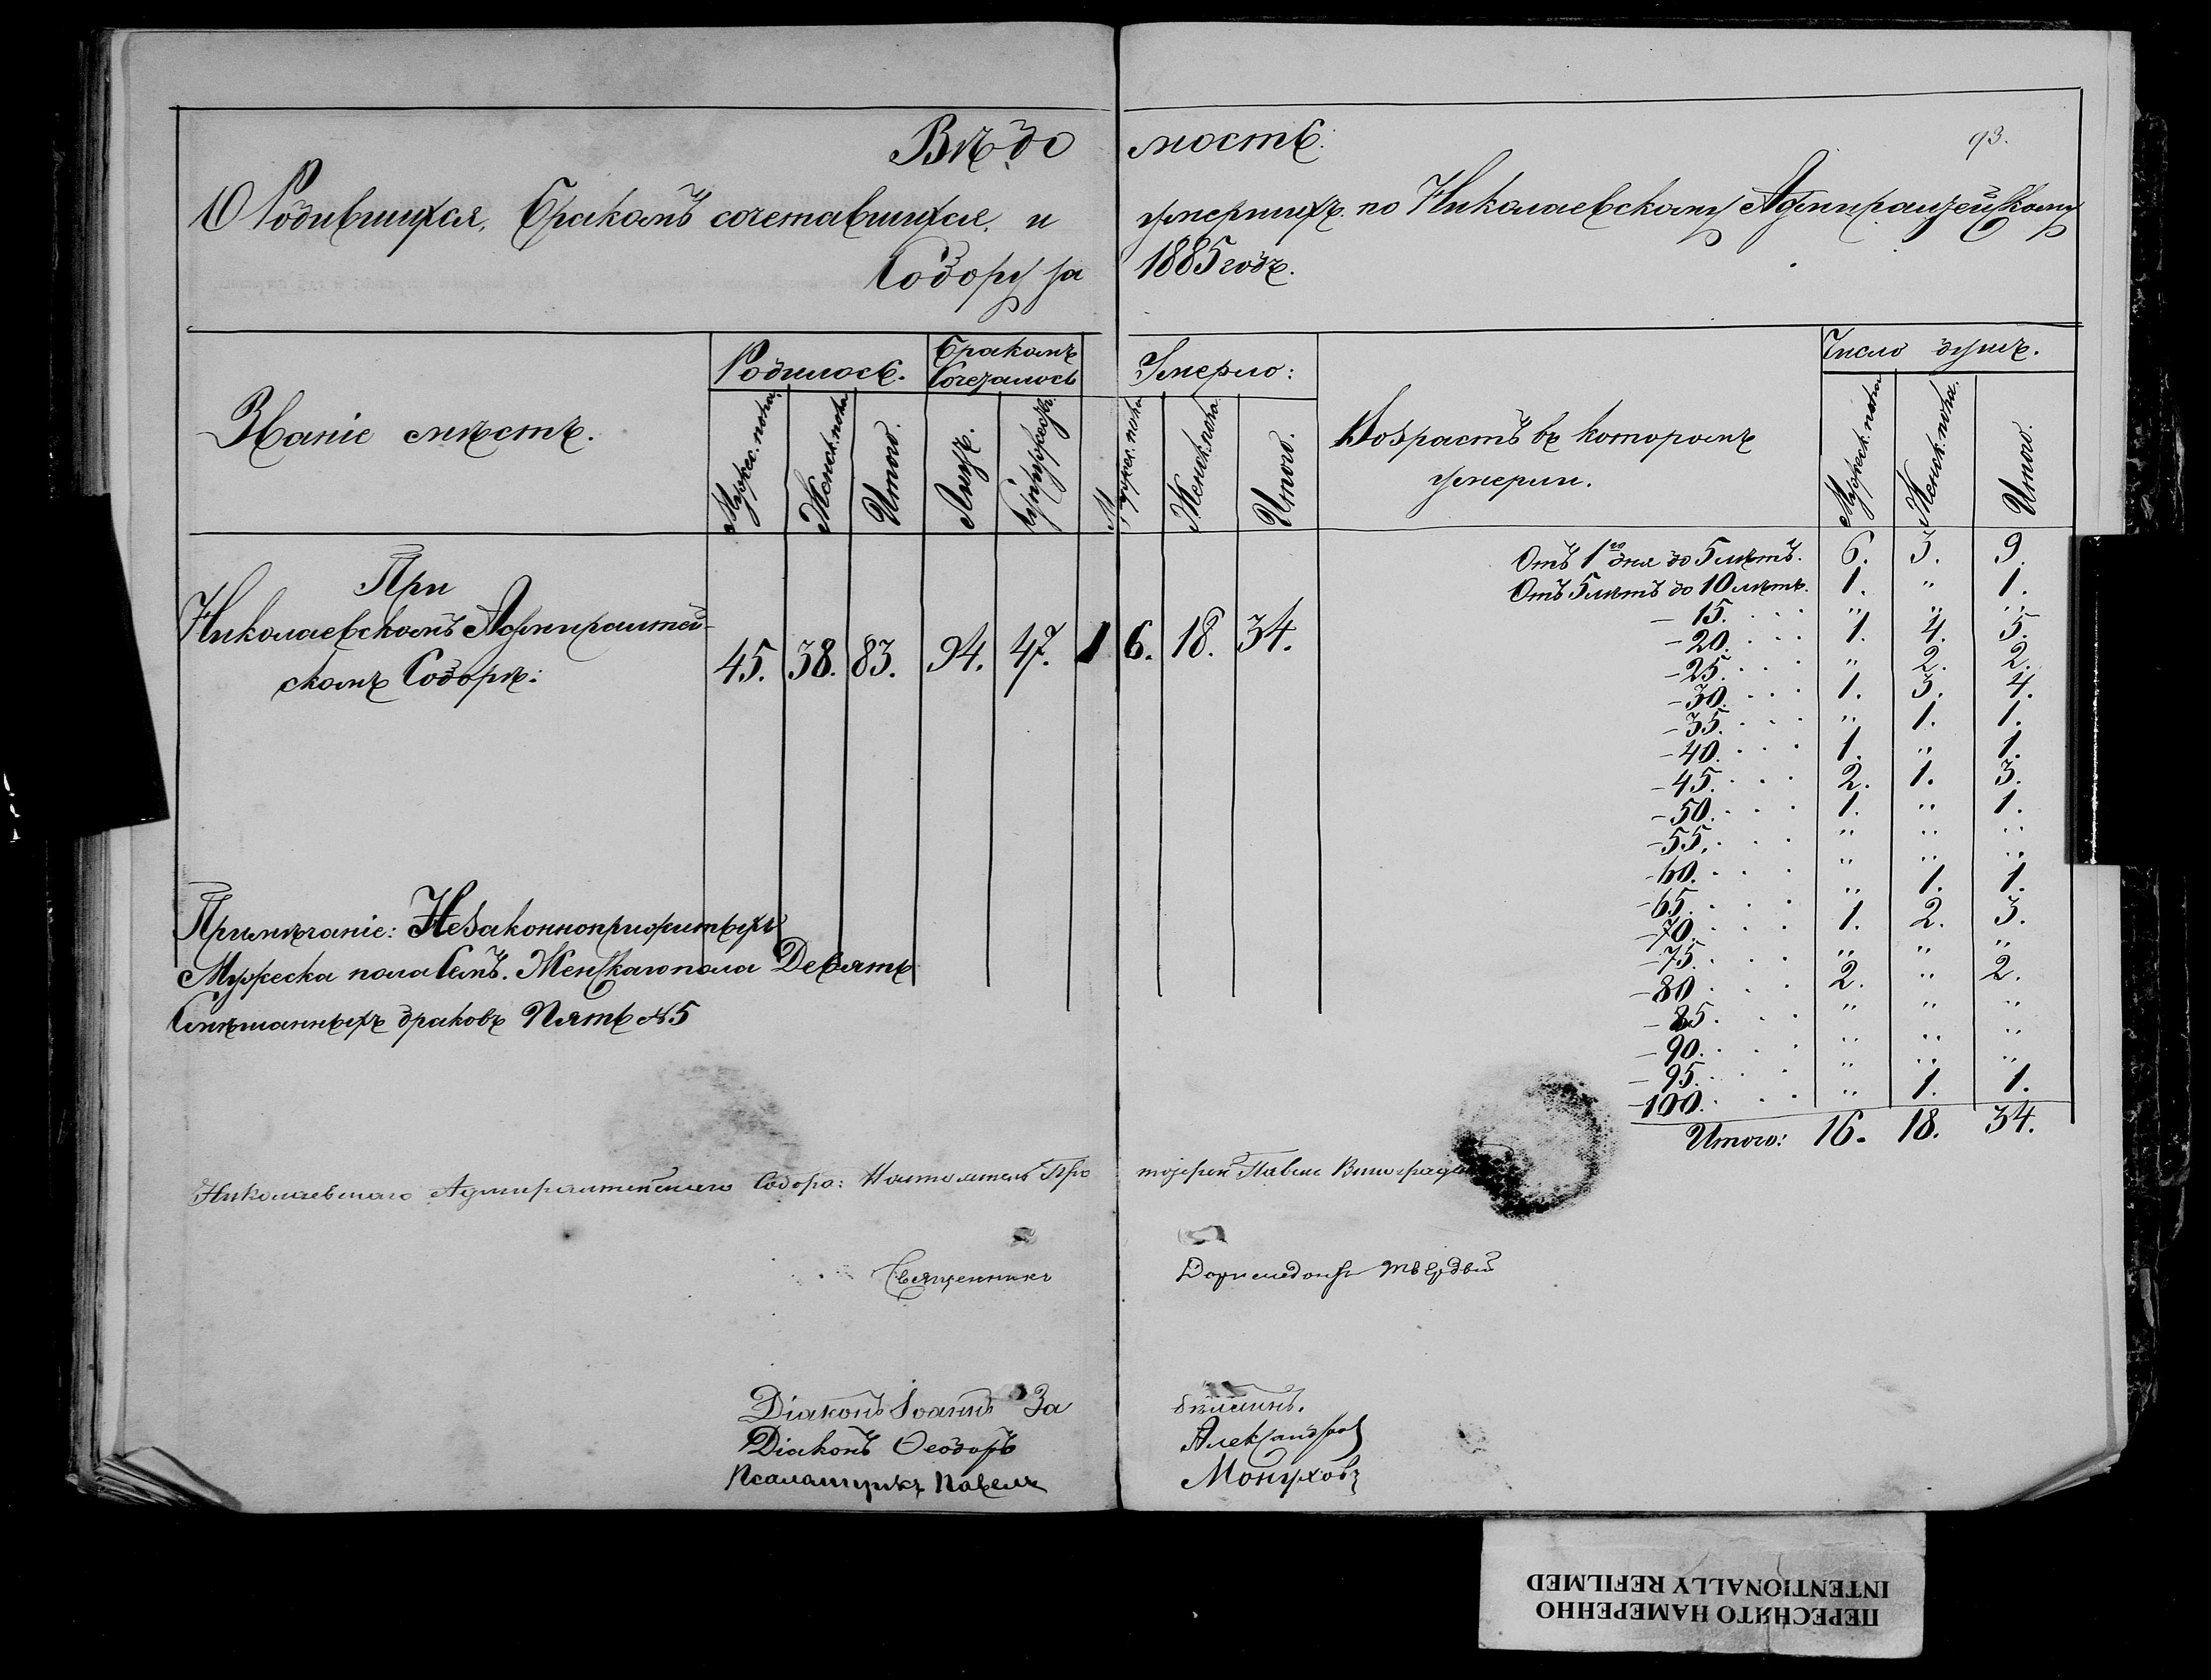 Вѣдомость.
93.
О Родившихся, бракомъ сочетавшихся, и умершихъ по Николаевскому Адмиралтейскому
Собору за 1885 годъ.
Званіе мѣстъ.
Родилось.
Бракомъ Сочеталось
Умерло:
Возрастъ въ которомъ умерли.
Число душъ.
Мужес. пола
Женск. пола
Итого.
Лицъ.
Супружествъ.
Мужеск. пола
Женск. пола
Итого.
Мужеск. пола
Женск. пола.
Итого.
При
Николаевскомъ Адмиралтей-
скомъ Соборѣ:
45. 38. 83. 94. 47. 16. 18. 34.
Отъ 1го дня до 5 лѣтъ. 6. 3. 9.
Отъ 5 лѣтъ до 10 лѣтъ. 1. " 1.
- 15. . . . " " "
- 20. . . . 1. 4. 5.
- 25. . . . " 2. 2.
- 30. . . . 1. 3. 4.
- 35. . . . " 1. 1.
- 40. . . . 1. " 1.
- 45. . . . 2. 1. 3.
- 50. . . . 1. " 1.
- 55. . . . " " "
- 60. . . . " " "
- 65. . . . " 1. 1.
- 70. . . . 1. 2. 3.
- 75. . . . " " "
- 80. . . . 2. " 2.
- 85. . . . " " "
- 90. . . . " " "
- 95. . . . " " "
- 100. . . . " 1. 1.
Итого: 16. 18. 34.
Примѣчаніе: Незаконноприжитыхъ
Мужеска пола Семь. Женскаго пола Девять
Смѣшанныхъ браковъ Пять №5
Николаевскаго Адмиралтейскаго Собора: Настоятель Протоіерей Павелъ Виноградовъ
Священникъ Доримедонтъ Твердый
Діаконъ Іоаннъ Забѣлинъ.
Діаконъ Ѳеодоръ Александровъ
Псаломщикъ Павелъ Монуховъ
ПЕРЕСНЯТО НАМЕРЕННО
INTENTIONALLY REFILMED